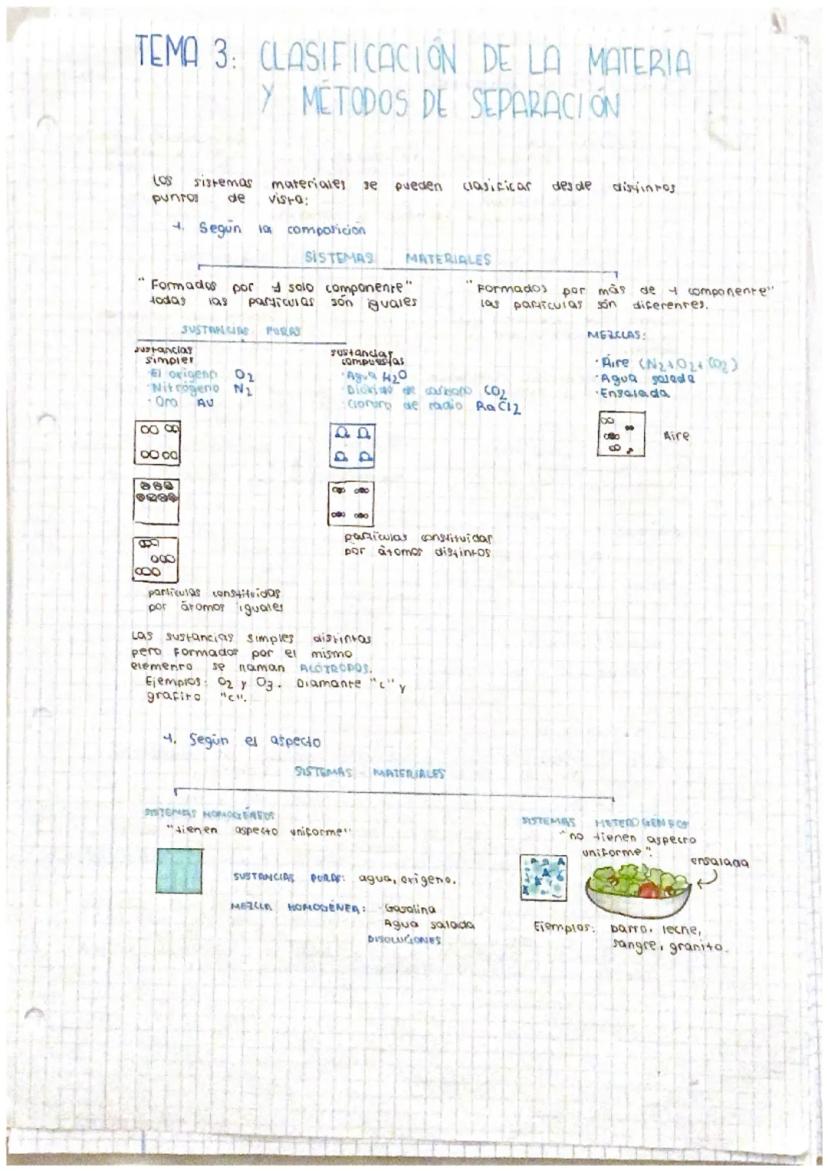 TEMA 3: CLASIFICACIÓN DE LA MATERIA
Y MÉTODOS DE SEPARACIÓN
Los sistemas materiales se pueden clasificar desde distintos
puntos de vista:
1. Según la composición
SISTEMAS MATERIALES
"Formados por 1 solo componente"
todas las partículas son iguales
"Formados por más de 1 componente"
las partículas són diferentes.
SUSTANCIAS PURAS
MEZCLAS:
sustancias
simples
· El oxígeno O2
· Nitrógeno N2
· Oro Au
sustancias
compuestas
· Agua H2O
· Dióxido de carbono CO2
· Cloruro de radio RaCl2
· Aire (N2+O2+CO2)
· Agua salada
· Ensalada
Aire
partículas constituidas
por átomos distintos
partículas constituidas
por átomos iguales
Las sustancias simples distintas
pero formados por el mismo
elemento se llaman ALÓTROPOS.
Ejemplos: O2 y O3. Diamante "C" y
grafito "C".
1. Según el aspecto
SISTEMAS MATERIALES
SISTEMAS HOMOGÉNEOS
"tienen aspecto uniforme"
SUSTANCIAS PURAS: agua, oxígeno.
MEZCLA HOMOGÉNEA: Gasolina
Agua salada
DISOLUCIONES
SISTEMAS HETEROGÉNEOS
"no tienen aspecto
uniforme".
ensalada
Ejemplos: barro, leche,
sangre, granito.